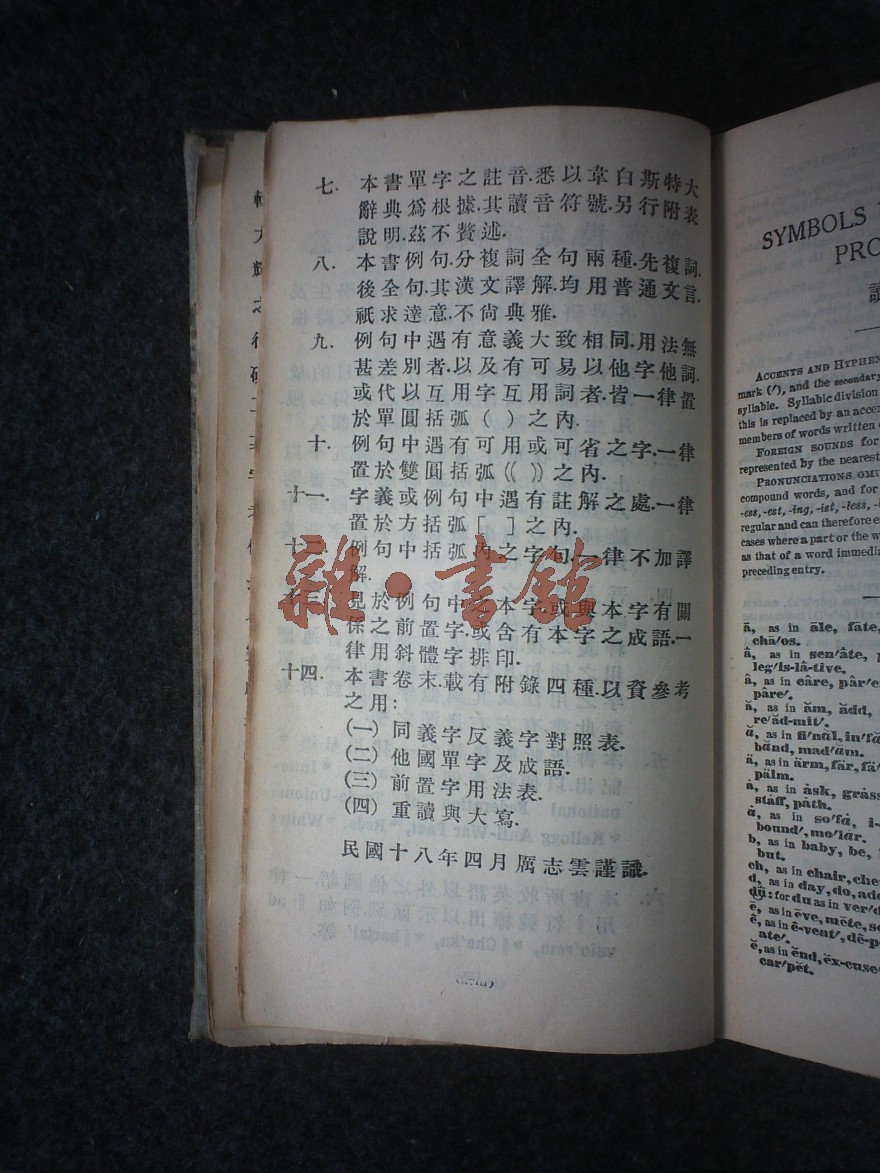 七. 本書單字之註音.悉以韋白斯特大
辭典爲根據.其讀音符號.另行附表
說明.茲不贅述.
八. 本書例句.分複詞全句兩種.先複詞.
後全句.其漢文譯解.均用普通文言.
祇求達意.不尙典雅.
九. 例句中遇有意義大致相同.用法無
甚差別者.以及有可易以他字他詞.
或代以互用字互用詞者.皆一律置
於單圓括弧( )之內.
十. 例句中遇有可用或可省之字.一律
置於雙圓括弧(( ))之內.
十一. 字義或例句中遇有註解之處.一律
置於方括弧[ ]之內.
十二. 例句中括弧內之字句.一律不加譯
解.
見於例句中之本字.或與本字有關
係之前置字.或含有本字之成語.一
律用斜體字排印.
十四. 本書卷末.載有附錄四種.以資參考
之用:
(一) 同義字反義字對照表.
(二) 他國單字及成語.
(三) 前置字用法表.
(四) 重讀與大寫.
民國十八年四月厲志雲謹識.
雜·書館
SYMBOLS
PRO
ACCENTS AND HYPHEN
mark (′), and the secondary
syllable. Syllabic division
this is replaced by an accen
members of words written
FOREIGN SOUNDS for
represented by the nearest
PRONUNCIATIONS OMI
compound words, and for
-ess, -est, -ing, -ist, -less,
regular and can therefore e
cases where a part or the w
as that of a word immedia
preceding entry.
ā, as in āle, fāte,
chā′os.
â, as in sen′âte, p
leg′is-lâ-tive.
â, as in câre, pâr′e
pâre′.
ă, as in ăm, ădd,
re′ăd-mit′.
ă, as in fi′năl, in′fă
bănd, mad′ăm.
ä, as in ärm, fär, fä′
pälm.
ȧ, as in ȧsk, grȧss
stȧff, pȧth.
ȧ, as in so′fȧ, i-
bound′, mo′lȧr.
b, as in baby, be,
but.
ch, as in chair, che
d, as in day, do, add
dū: for du as in ver′d
ē, as in ēve, mēte, se
ê, as in ê-vent′, dê-p
ate′.
ĕ, as in ĕnd, ĕx-cuse′
car′pĕt.